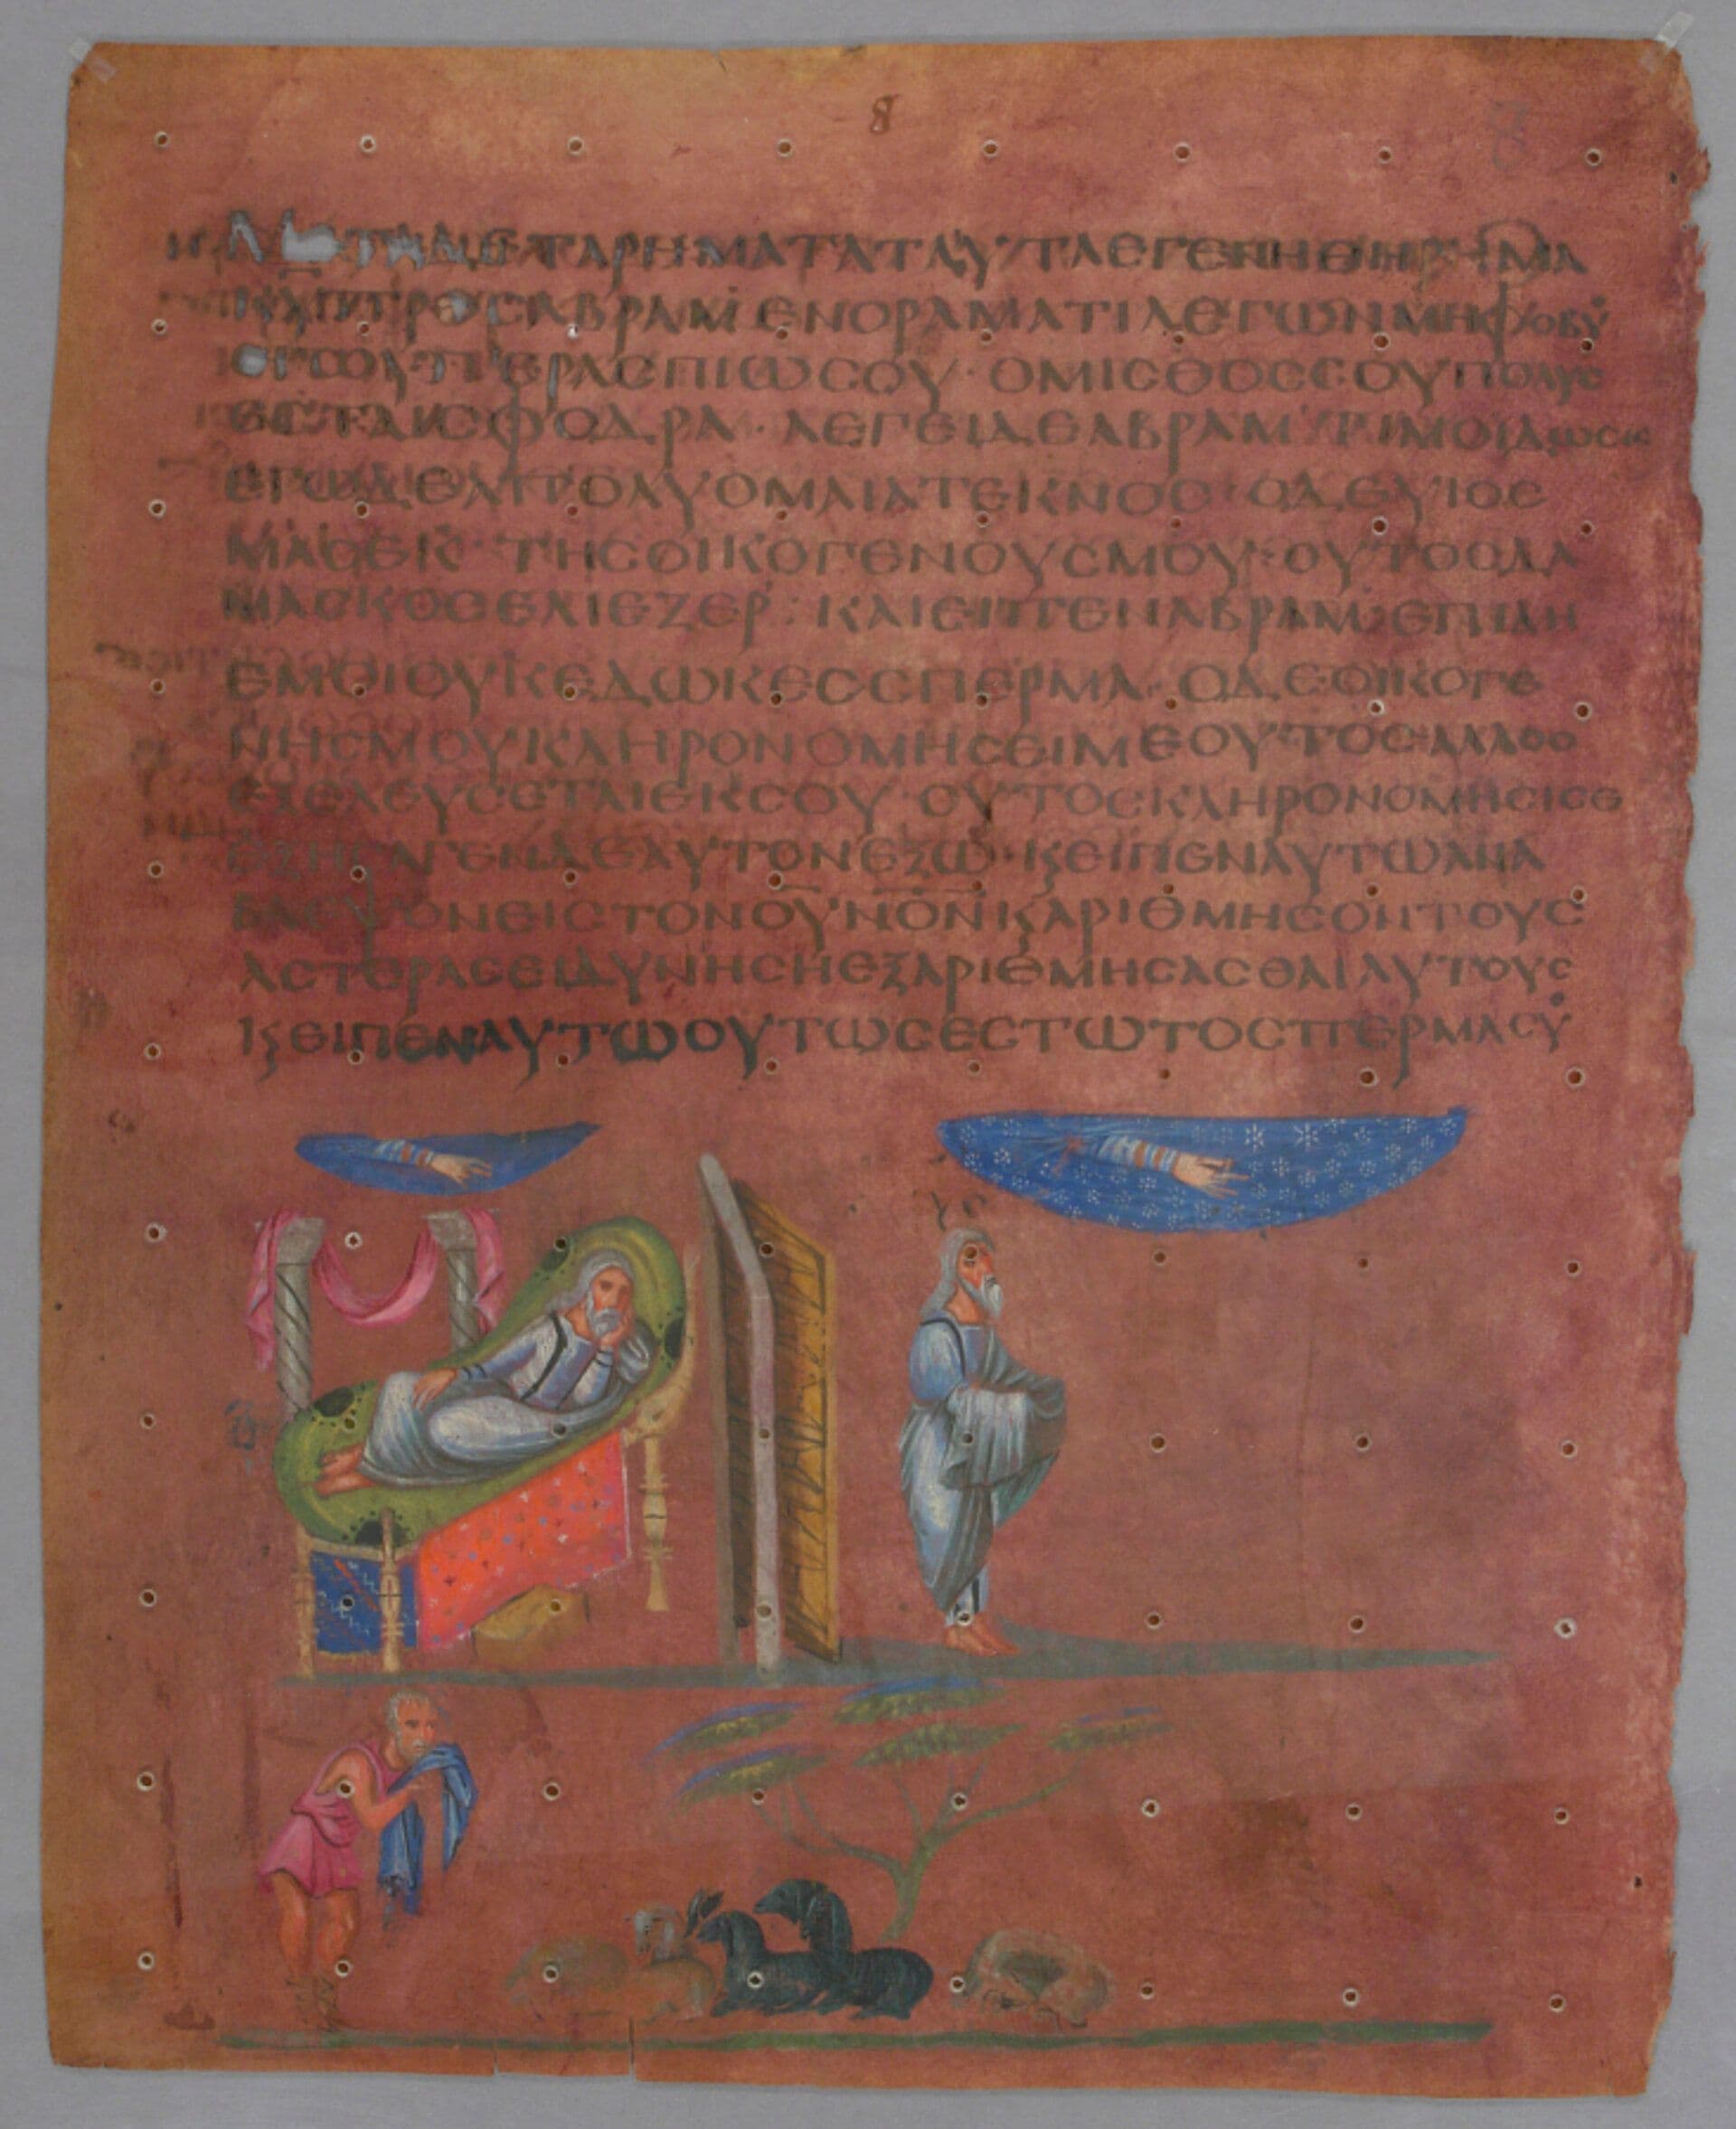 8
ΜΕΤΑΔΕΤΑΡΗΜΑΤΑΤΑΥΤΑΕΓΕΝΗΘΗΡΗΜΑ
ΚΥΠΡΟΣΑΒΡΑΜΕΝΟΡΑΜΑΤΙΛΕΓΩΝΜΗΦΟΒΥ
ΕΓΩΥΠΕΡΑСΠΙΩСΟΥ·ΟΜΙСΘΟССΟΥΠΟΛΥС
ΕСΤΑΙСΦΟΔΡΑ·ΛΕΓΕΙΔΕΑΒΡΑΜ ΤΙΜΟΙΔΩСΙС
ΕΓΩΔΕΑΠΟΛΥΟΜΑΙΑΤΕΚΝΟС·ΟΔΕΥΙΟС
ΜΑСΕΚ·ΤΗСΟΙΚΟΓΕΝΟΥСΜΟΥ·ΟΥΤΟСΔΑ
ΜΑСΚΟСΕΛΙΕΖΕΡ:ΚΑΙΕΙΠΕΝΑΒΡΑΜ·ΕΠΙΔΗ
ΕΜΟΙΟΥΚΕΔΩΚΕССΠΕΡΜΑ·ΟΔΕΟΙΚΟΓΕ
ΝΗСΜΟΥΚΛΗΡΟΝΟΜΗСΕΙΜΕΟΥΤΟС·ΑΛΛΟС
ΕΞΕΛΕΥСΕΤΑΙΕΚСΟΥ ΟΥΤΟСΚΛΗΡΟΝΟΜΗСΙСΕ
ΕΞΗΓΑΓΕΝΔΕΑΥΤΟΝΕΞΩ·ϗΕΙΠΕΝΑΥΤΩΑΝΑ
ΒΛΕΨΟΝΕΙСΤΟΝΟΥΝΟΝϗΑΡΙΘΜΗСΟΝΤΟΥС
ΑСΤΕΡΑСΕΙΔΥΝΗСΗΕΞΑΡΙΘΜΗСΑСΘΑΙΑΥΤΟΥС
ϗΕΙΠΕΝΑΥΤΩΟΥΤΩСΕСΤΩΤΟСΠΕΡΜΑСΥ